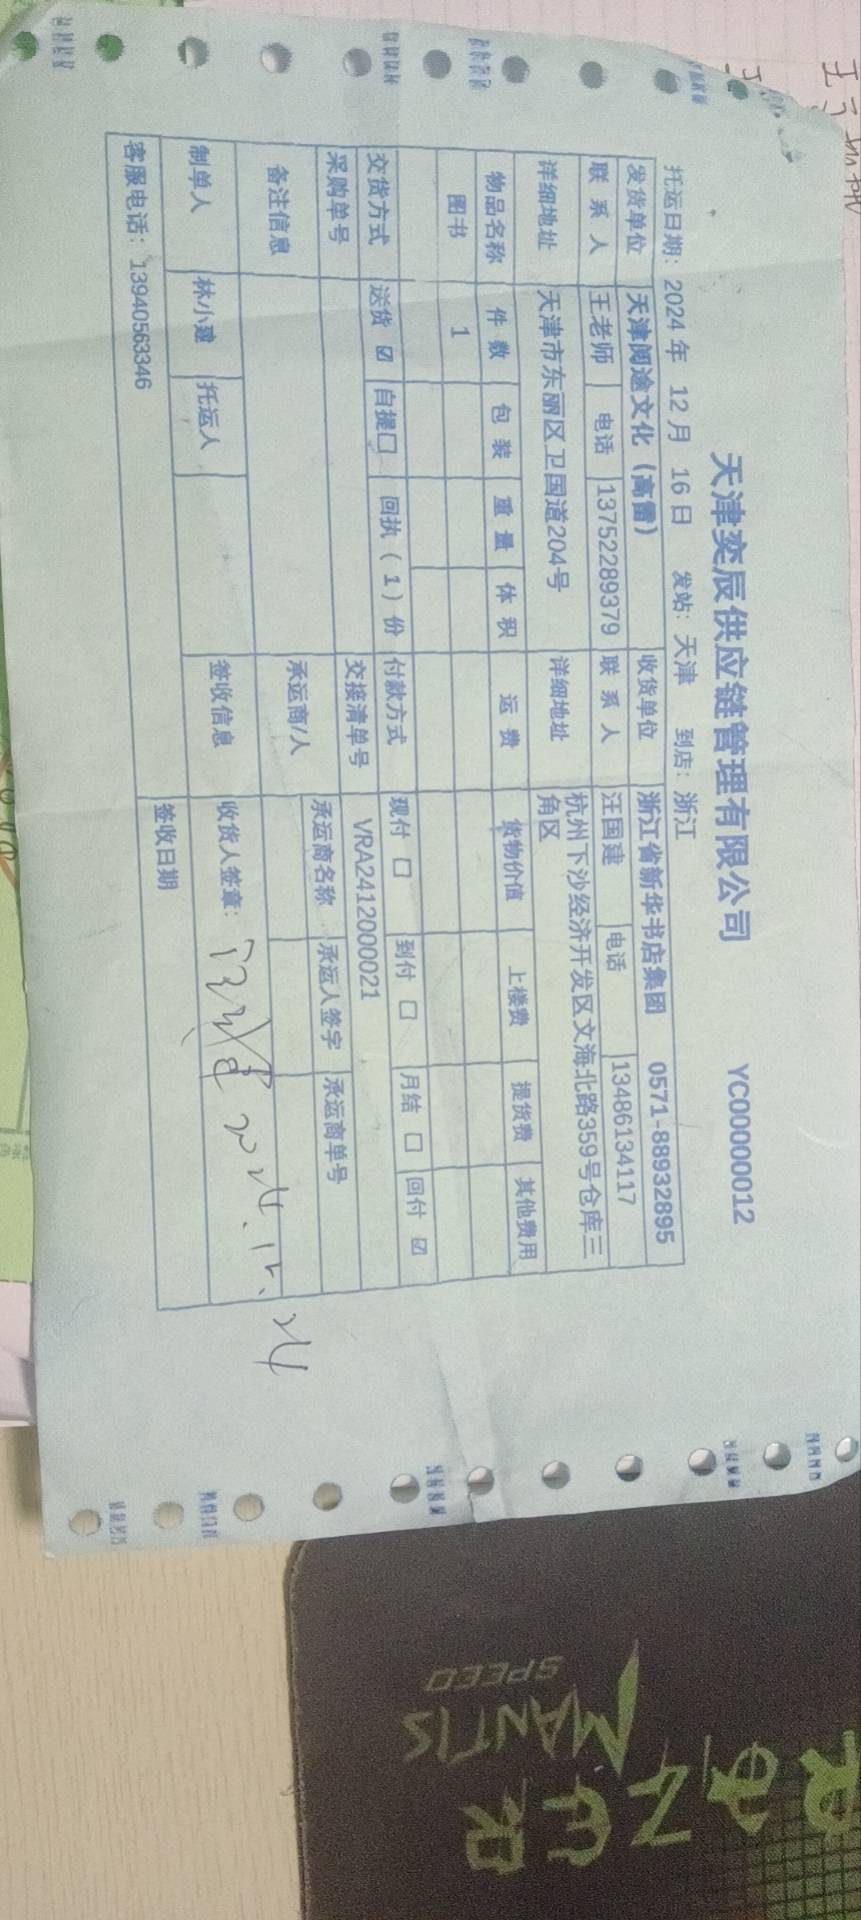 天津奕辰供应链管理有限公司 YC00000012
托运日期: 2024 年 12 月 16 日 发站: 天津 到店: 浙江
发货单位 天津阅途文化（高雷） 收货单位 浙江省新华书店集团 0571-88932895
联 系 人 王老师 电话 13752289379 联 系 人 汪国建 电话 13486134117
详细地址 天津市东丽区卫国道204号 详细地址 杭州下沙经济开发区文海北路359号仓库三
角区
物品名称 件 数 包 装 重 量 体 积 运 费 货物价值 上楼费 提货费 其他费用
图书 1
交货方式 送货 ☑ 自提☐ 回执（ 1 ）份 付款方式 现付 ☐ 到付 ☐ 月结 ☐ 回付 ☑
采购单号 交接清单号 VRA2412000021
备注信息 承运商/人 承运商名称 承运人签字 承运商单号
制单人 林小建 托运人 签收信息 收货人签章: 汪国建 2024.12.24
签收日期
客服电话: 13940563346
MANTIS
SPEED